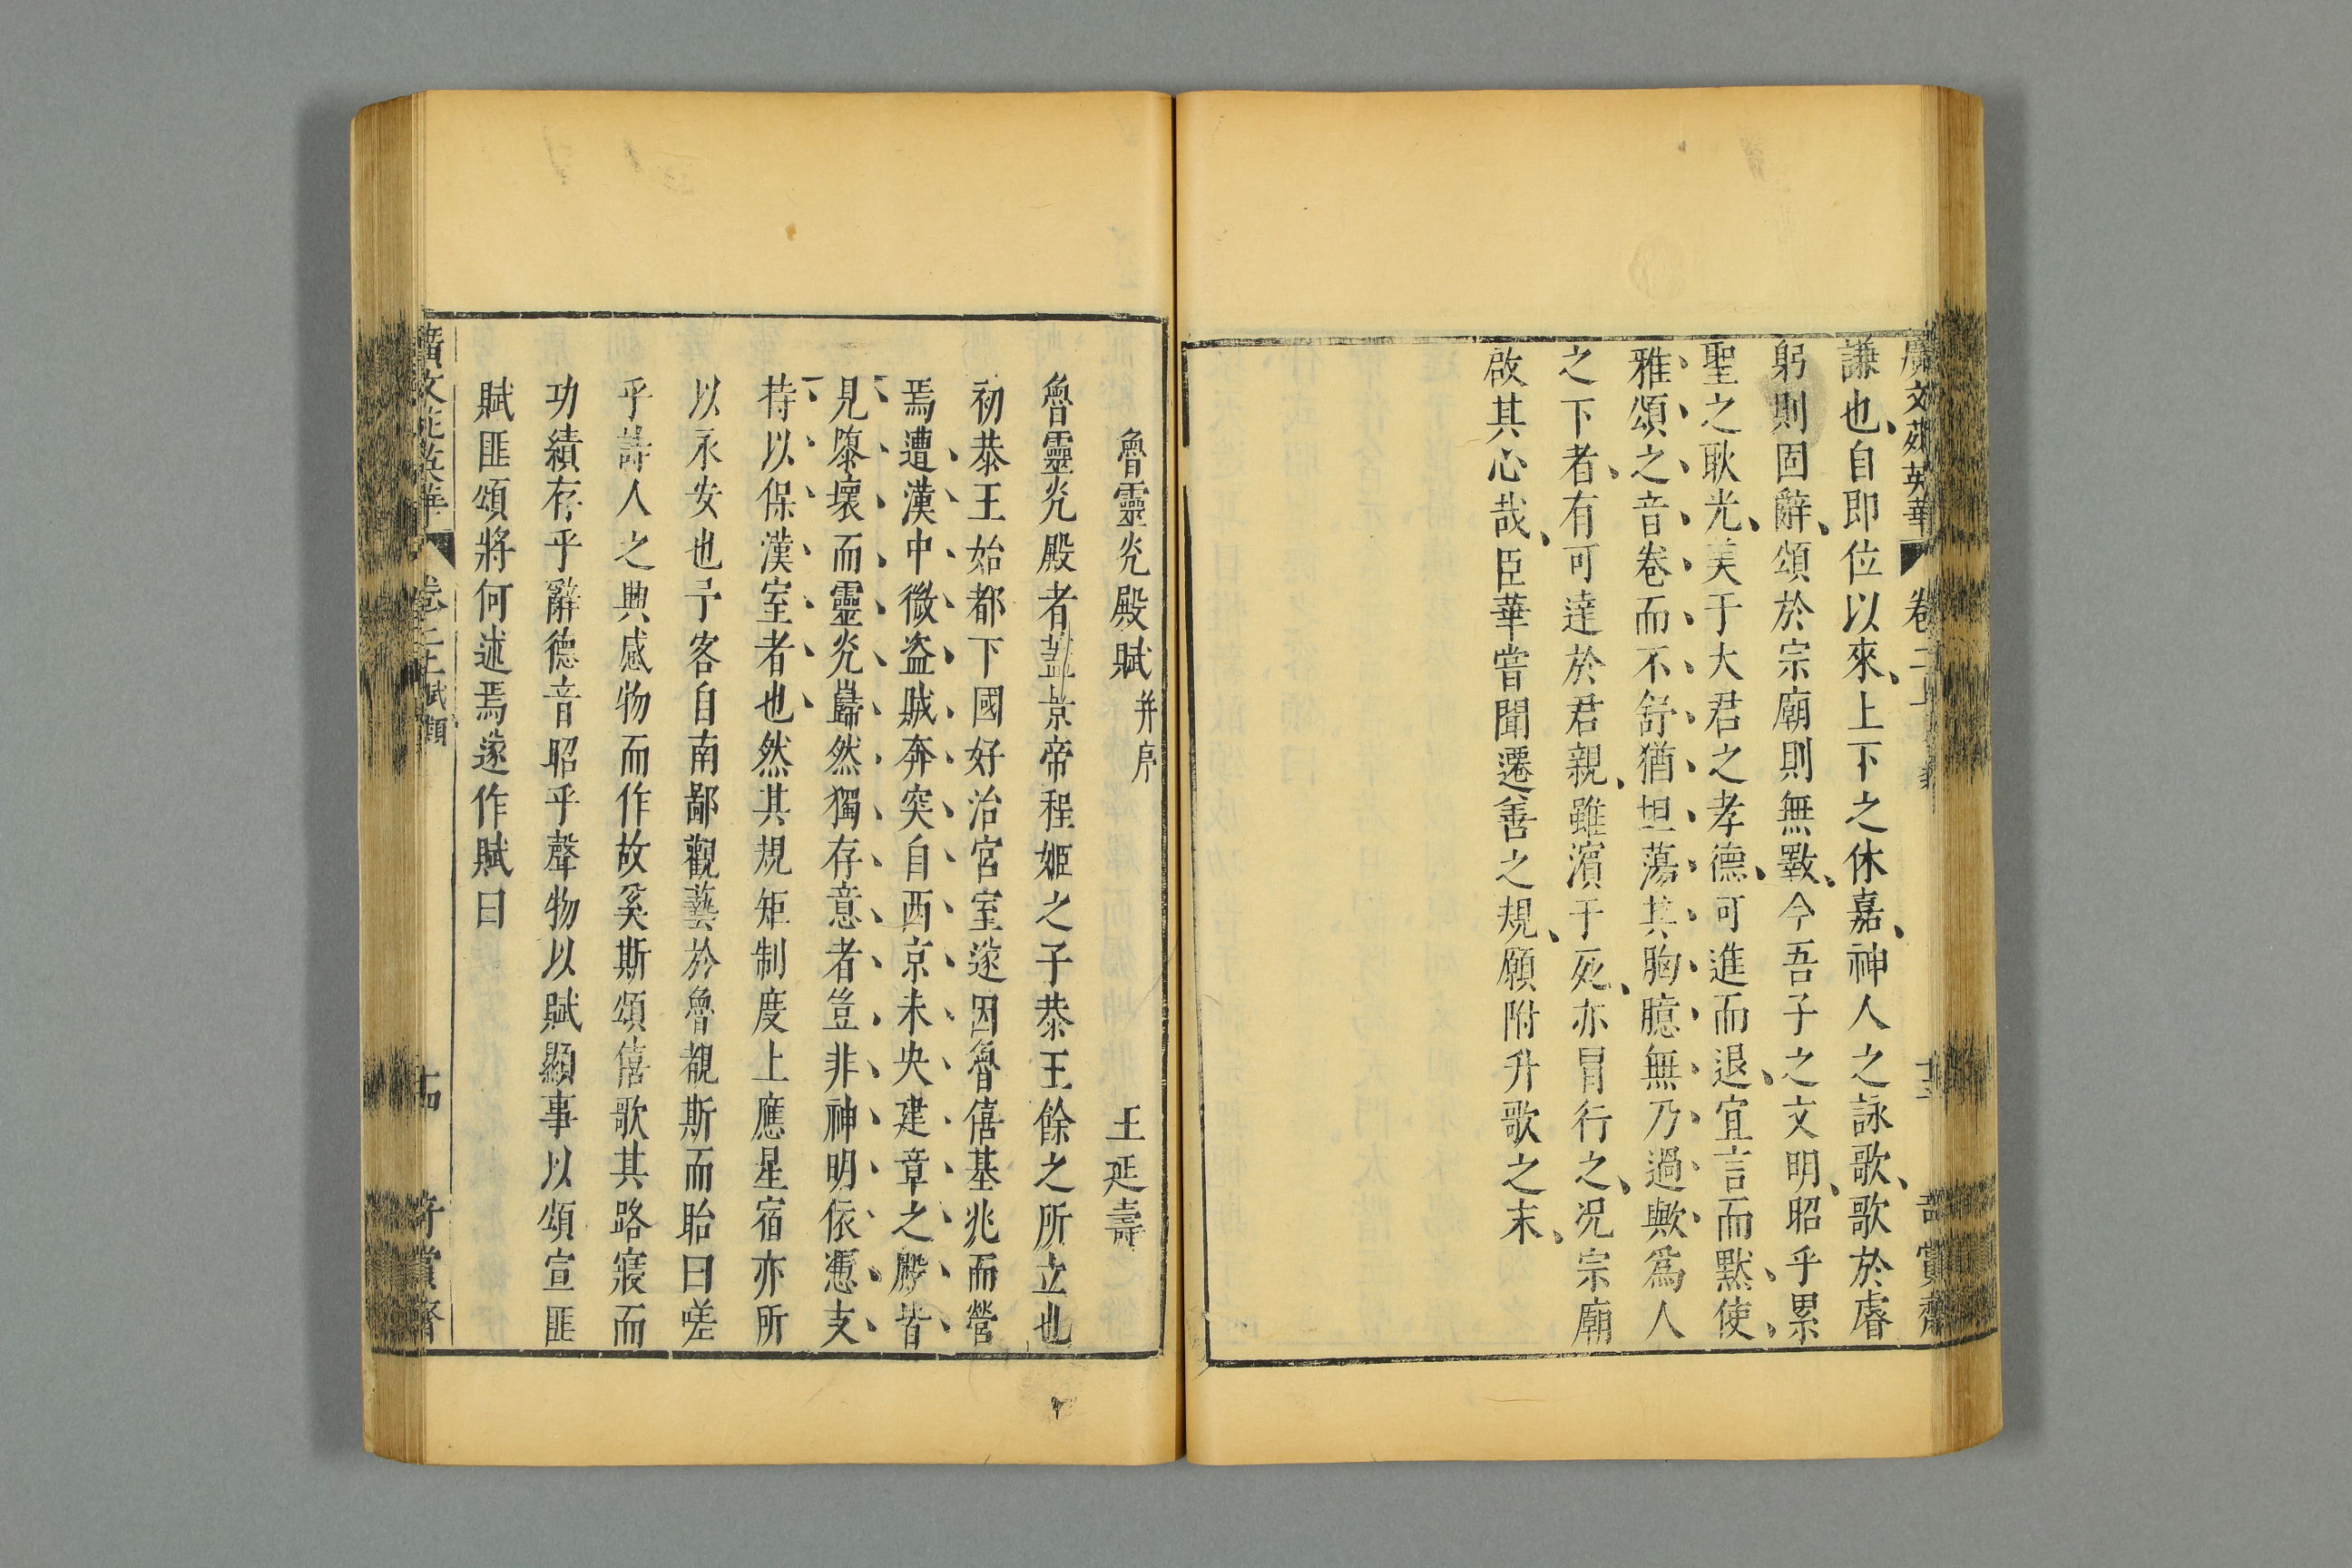 廣文苑英華 卷二上
謙也自即位以來上下之休嘉神人之詠歌歌於睿
躬則固辭頌於宗廟則無斁今吾子之文明昭乎累
聖之耿光美于大君之孝德可進而退宜言而默使
雅頌之音卷而不舒猶坦蕩其胸臆無乃過歟爲人
之下者有可達於君親雖濱于死亦冒行之况宗廟
啟其心哉臣華嘗聞遷善之規願附升歌之末
魯靈光殿賦 并序 王延壽
魯靈光殿者蓋景帝程姬之子恭王餘之所立也
初恭王始都下國好治宮室遂因魯僖基兆而營
焉遭漢中微盗賊奔突自西京未央建章之殿皆
見隳壞而靈光巋然獨存意者豈非神明依憑支
持以保漢室者也然其規矩制度上應星宿亦所
以永安也予客自南鄙觀藝於魯覩斯而眙曰嗟
乎詩人之興感物而作故奚斯頌僖歌其路寢而
功績存乎辭德音昭乎聲物以賦顯事以頌宣匪
賦匪頌將何述焉遂作賦曰
廣文苑英華 卷二上 賦類 十四